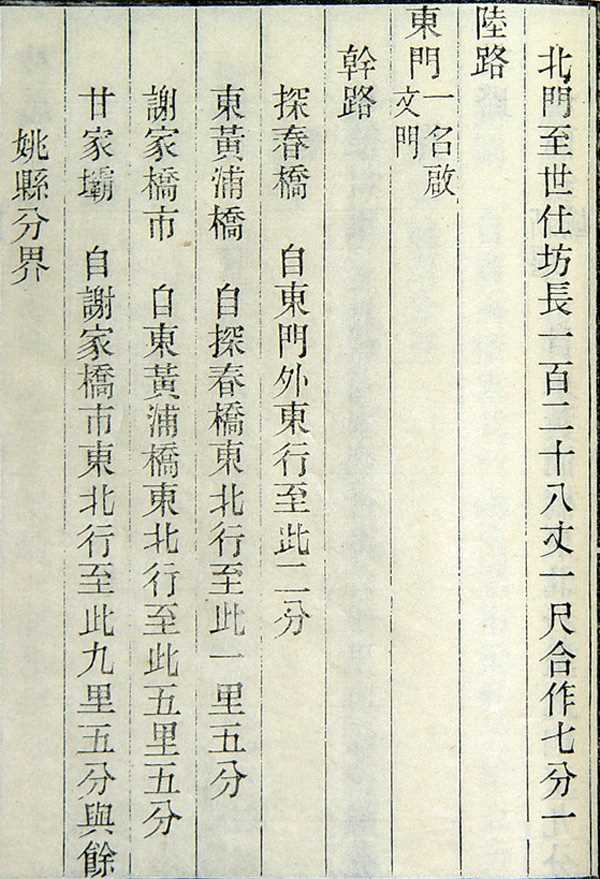 北門至世仕坊長一百二十八丈一尺合作七分一
陸路
東門一名啟
文門
幹路
探春橋　自東門外東行至此二分
東黃浦橋　自探春橋東北行至此一里五分
謝家橋市　自東黃浦橋東北行至此五里五分
甘家壩　自謝家橋市東北行至此九里五分與餘
姚縣分界